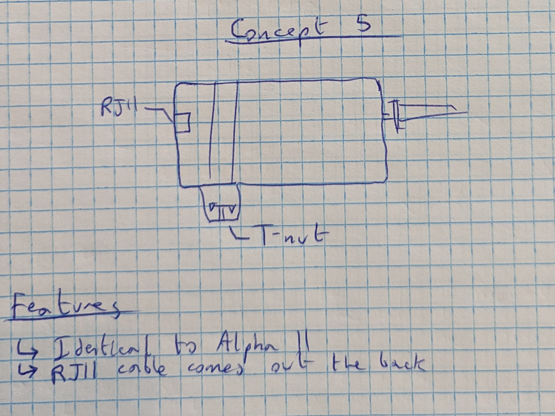 Concept 5
RJ11
T-nut
Features
↳ Identical to Alpha 11
↳ RJ11 cable comes out the back